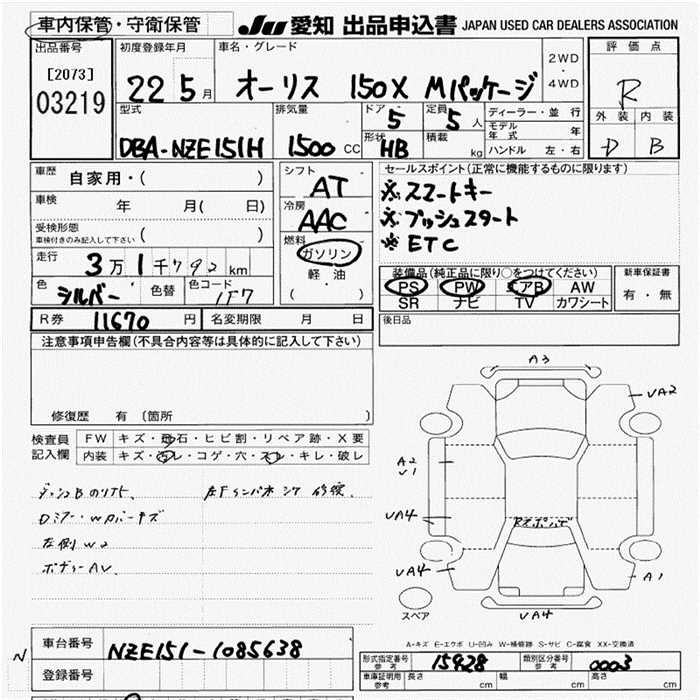 車内保管・守衛保管 JU 愛知 出品申込書 JAPAN USED CAR DEALERS ASSOCIATION
出品番号 初度登録年月 車名・グレード 2WD・4WD 評価点
[2073] 03219 22 5月 オーリス 150X Mパッケージ R
型式 排気量 ドア 5 定員 5人 ディーラー・並行 外装 内装
DBA-NZE151H 1500 CC 形状 HB 積載 kg モデル年式 年 D B
ハンドル 左・右
車歴 自家用・( ) シフト AT セールスポイント(正常に機能するものに限ります)
車検 年 月( 日) 冷房 AAC ※スマートキー
受検形態 車検付きのみ記入して下さい ( ) ※プッシュスタート
走行 3万1千792km 燃料 ガソリン 軽油 ( ) ※ETC
色 シルバー 色替 色コード 1F7
装備品(純正品に限り○をつけてください) 新車保証書
PS PW エアB AW 有・無
SR ナビ TV カワシート
R券 11670 円 名変期限 月 日 後日品
注意事項申告欄(不具合内容等は具体的に記入して下さい)
修復歴 有 (箇所 )
検査員記入欄 FW キズ・飛石・ヒビ割・リペア跡・X要
内装 キズ・汚レ・コゲ・穴・スレ・キレ・破レ
左側W2
ボディーAV.
A3
VA2
A2
V1
VA4
VA4
A1
VA4
スペア
A-キズ E-エクボ U-凹み W-補修跡 S-サビ C-腐食 XX-交換済
N 車台番号 NZE151-1085638
登録番号
形式指定番号 参考 15928 類別区分番号 参考 0003
車庫証明用 参考 長さ cm 幅 cm 高さ cm